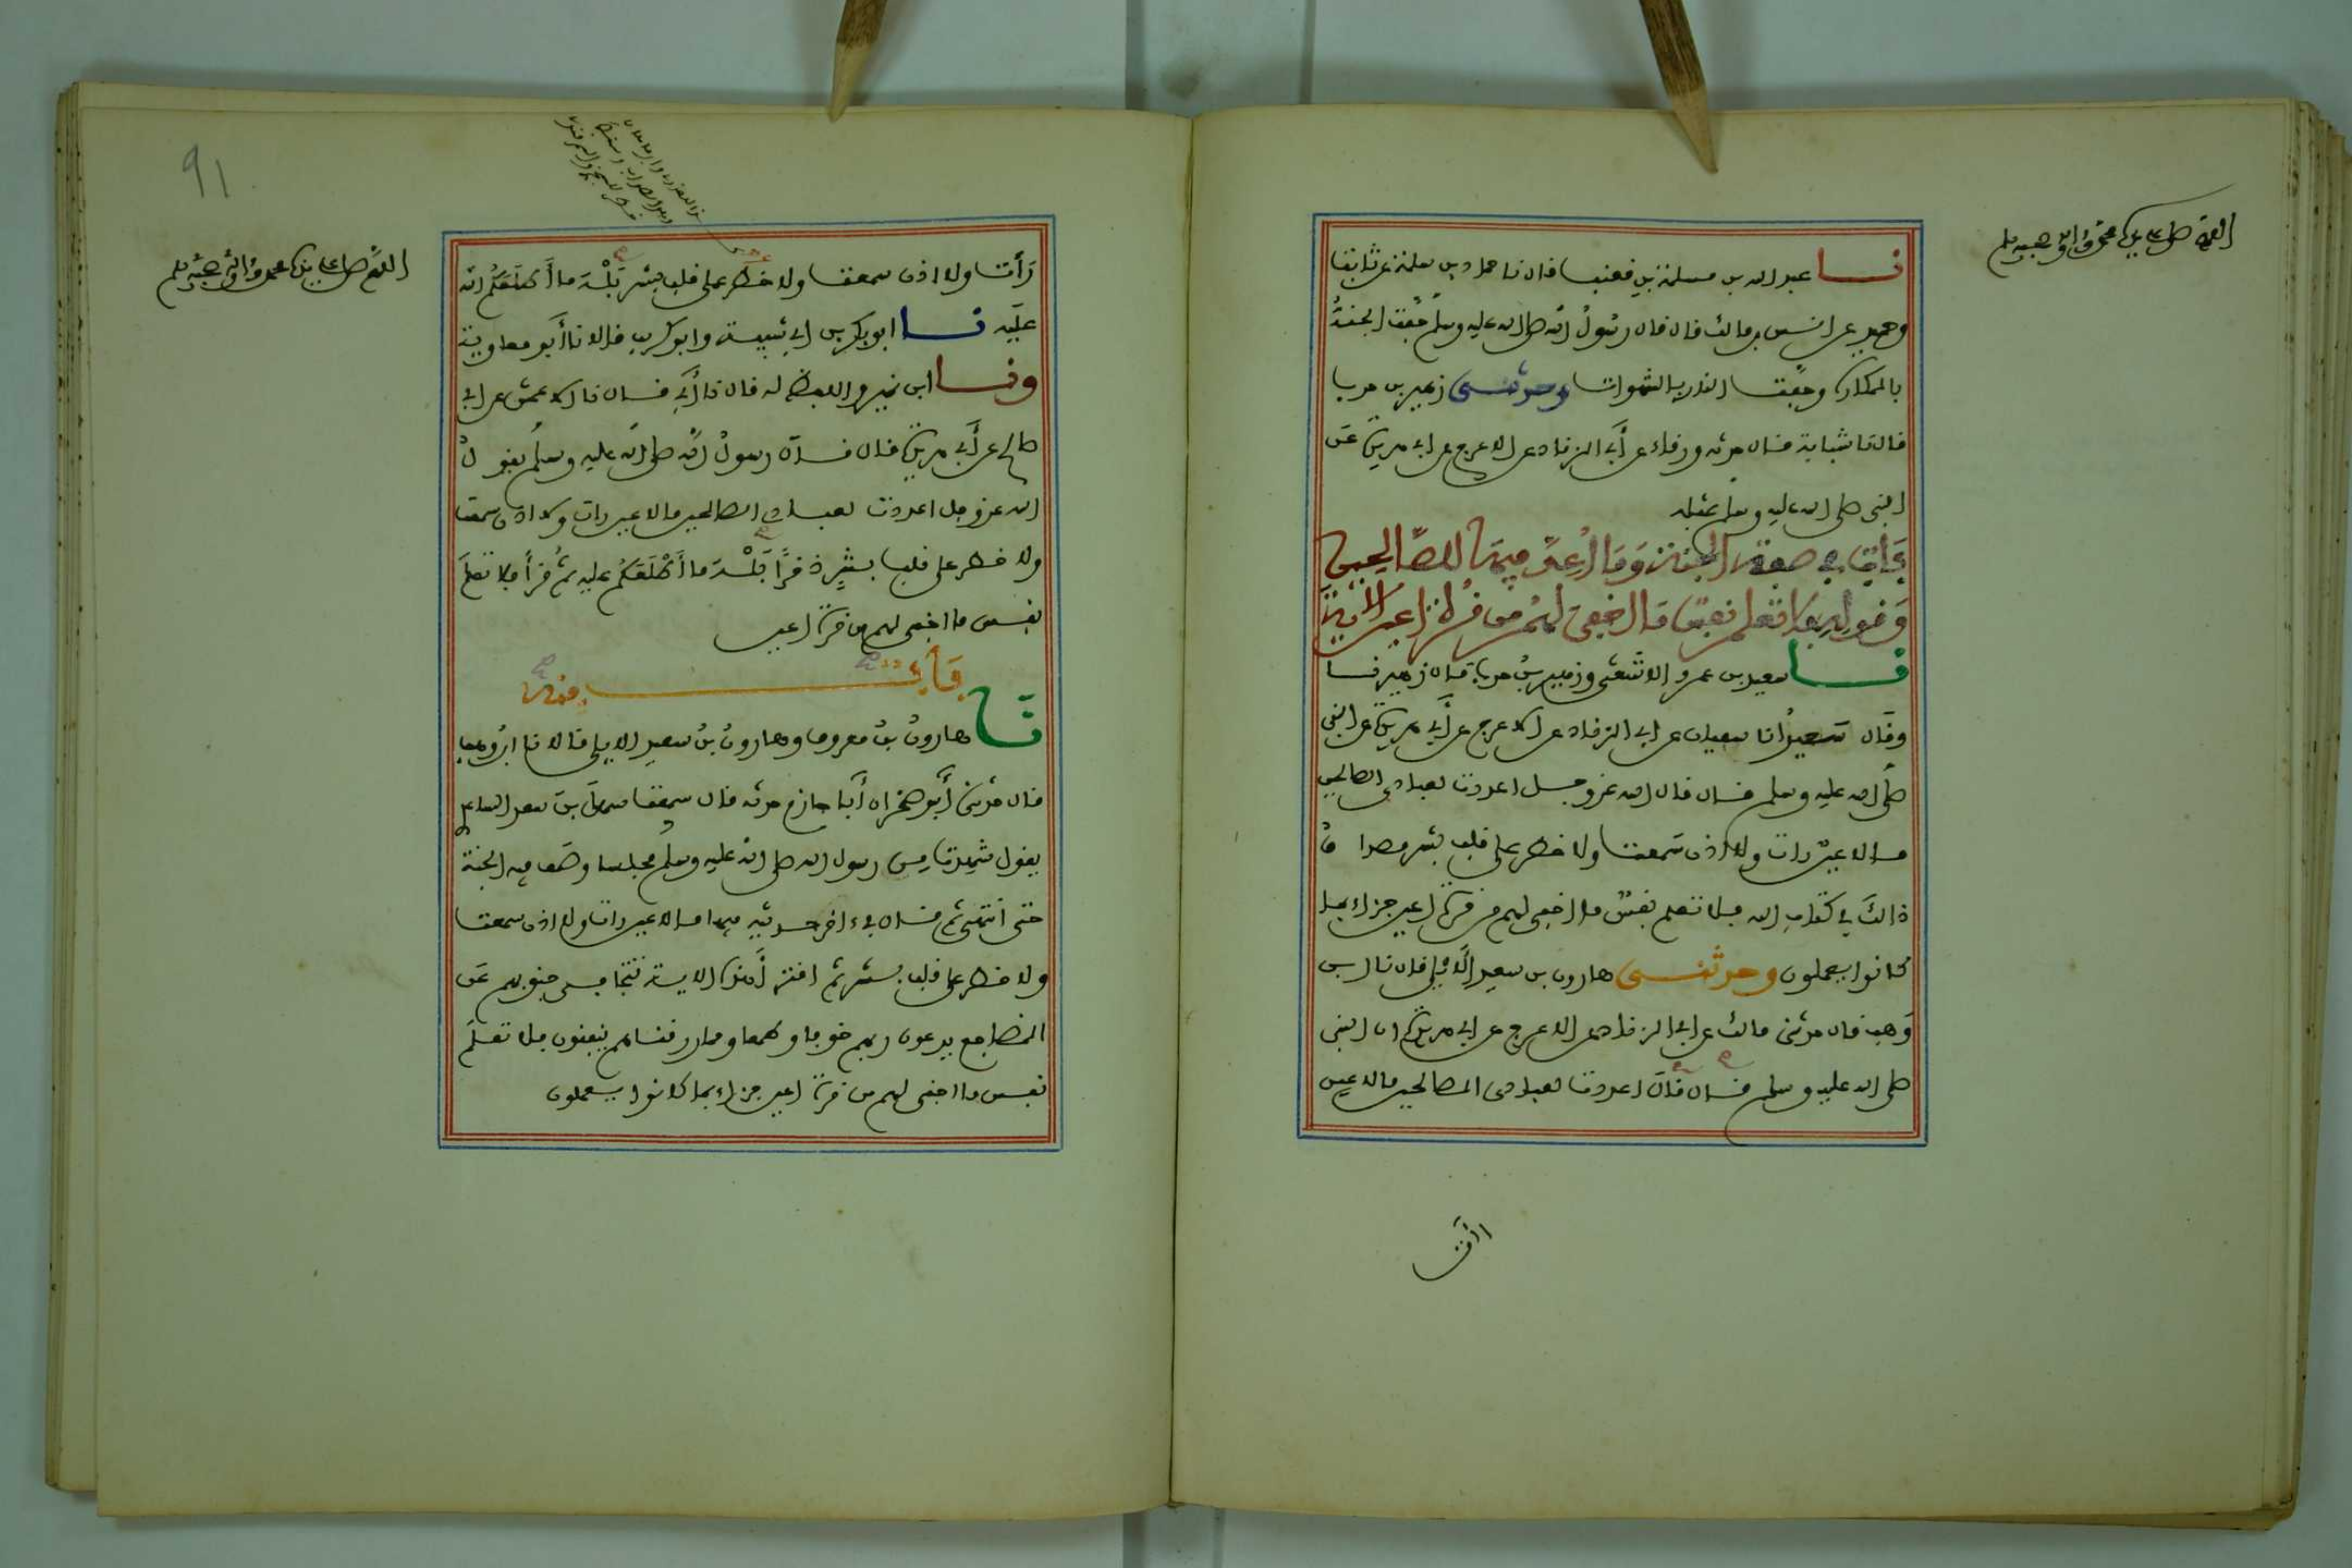 اللهم صل على سيدنا محمد وءاله وصحبه وسلم
نا عبد الله بن مسلمة بن قعنب قال نا حماد بن سلمة عن ثابت
وحميد عن انس بن مالك قال قال رسول الله صلى الله عليه وسلم حفت الجنة
بالمكاره وحفت النار بالشهوات وحدثنى زهير بن حرب
قال نا شبابة قال حدثه ورقاء عن أبي الزناد عن الاعرج عن ابي هريرة عن
النبى صلى الله عليه وسلم بمثله
باب في صفة الجنة وما أعد فيها للصالحين
وقوله فلا تعلم نفس ما اخفي لهم من قرة اعين الاية
نا سعيد بن عمرو الاشعثى وزهير بن حرب قال زهير نا
وقال سعيد انا سفيان عن ابي الزناد عن الاعرج عن أبي هريرة عن النبى
صلى الله عليه وسلم قال قال الله عز وجل اعددت لعبادى الصالحين
ما لا عين رات ولا اذن سمعت ولا خطر على قلب بشر مصداق
ذالك في كتاب الله فلا تعلم نفس ما اخفى لهم من قرة اعين جزاء بما
كانوا يعملون وحدثنى هارون بن سعيد الايلي قال نا ابن
وهب قال حدثنى مالك عن ابي الزناد عن الاعرج عن ابي هريرة ان النبى
صلى الله عليه وسلم قال قال اعددت لعبادى الصالحين ما لا عين
رأت
91
اللهم صل على سيدنا محمد وءاله وصحبه وسلم
رأت ولا اذن سمعت ولا خطر على قلب بشر بله ما أطلعكم الله
عليه نا ابو بكر بن ابي شيبة وابو كريب قالا نا أبو معاوية
ونا ابن نمير واللفظ له قال نا أبي قال نا الاعمش عن ابي
صالح عن أبي هريرة قال قال رسول الله صلى الله عليه وسلم يقول
الله عز وجل اعددت لعبادي الصالحين ما لا عين رات ولا اذن سمعت
ولا خطر على قلب بشر ذخرا بله ما أطلعكم عليه ثم قرأ فلا تعلم
نفس ما اخفى لهم من قرة اعين
باب منه
نا هارون بن معروف وهارون بن سعيد الايلي قالا نا ابن وهب
قال حدثنى أبو صخر ان أبا حازم حدثه قال سمعت سهل بن سعد الساعدي
يقول شهدت من رسول الله صلى الله عليه وسلم مجلسا وصف فيه الجنة
حتى انتهى ثم قال في ءاخر حديثه فيها ما لا عين رات ولا اذن سمعت
ولا خطر على قلب بشر ثم اقترأ هذه الاية تتجافى جنوبهم عن
المضاجع يدعون ربهم خوفا وطمعا ومما رزقناهم ينفقون فلا تعلم
نفس ما اخفى لهم من قرة اعين جزاء بما كانوا يعملون